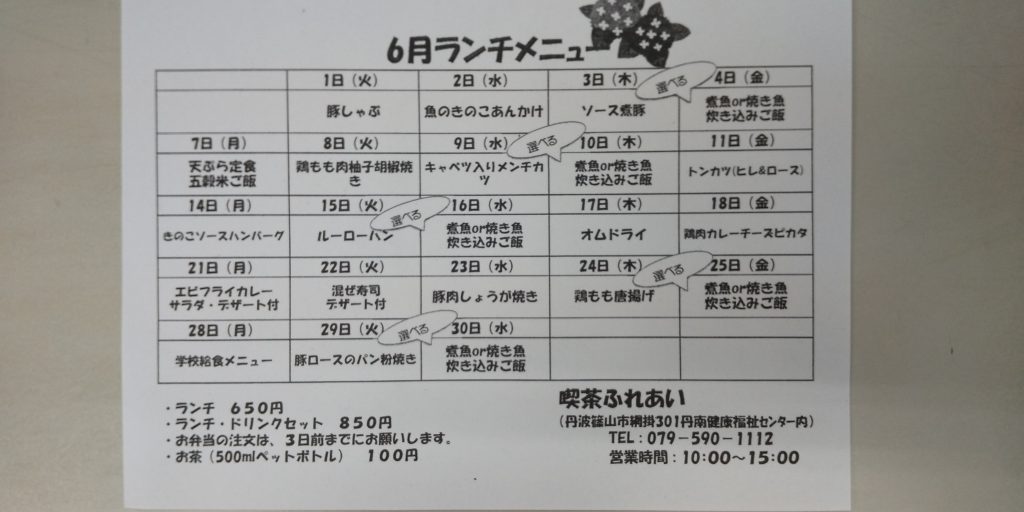 6月ランチメニュー
1日（火） 2日（水） 3日（木） 選べる 4日（金）
豚しゃぶ 魚のきのこあんかけ ソース煮豚 煮魚or焼き魚
炊き込みご飯
7日（月） 8日（火） 9日（水） 選べる 10日（木） 11日（金）
天ぷら定食 鶏もも肉柚子胡椒焼 キャベツ入りメンチカ 煮魚or焼き魚 トンカツ(ヒレ&ロース)
五穀米ご飯 き ツ 炊き込みご飯
14日（月） 15日（火） 選べる 16日（水） 17日（木） 18日（金）
きのこソースハンバーグ ルーローハン 煮魚or焼き魚 オムドライ 鶏肉カレーチーズピカタ
炊き込みご飯
21日（月） 22日（火） 23日（水） 24日（木） 選べる 25日（金）
エビフライカレー 混ぜ寿司 豚肉しょうが焼き 鶏もも唐揚げ 煮魚or焼き魚
サラダ・デザート付 デザート付 炊き込みご飯
28日（月） 29日（火） 選べる 30日（水）
学校給食メニュー 豚ロースのパン粉焼き 煮魚or焼き魚
炊き込みご飯
・ランチ 650円
・ランチ・ドリンクセット 850円
・お弁当の注文は、3日前までにお願いします。
・お茶（500mlペットボトル） 100円
喫茶ふれあい
(丹波篠山市網掛301丹南健康福祉センター内)
TEL：079－590－1112
営業時間：10:00～15:00